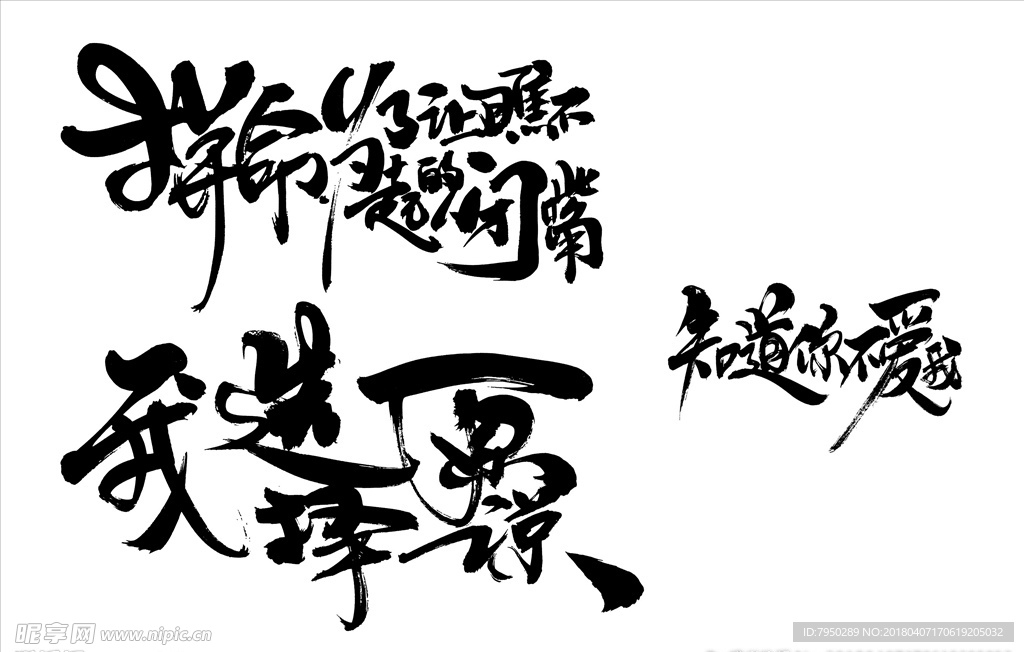 拼命为了让瞧不
起的人闭嘴
知道你不爱我
我选择原谅
昵享网 www.nipic.cn
ID:7950289 NO:20180407170619205032